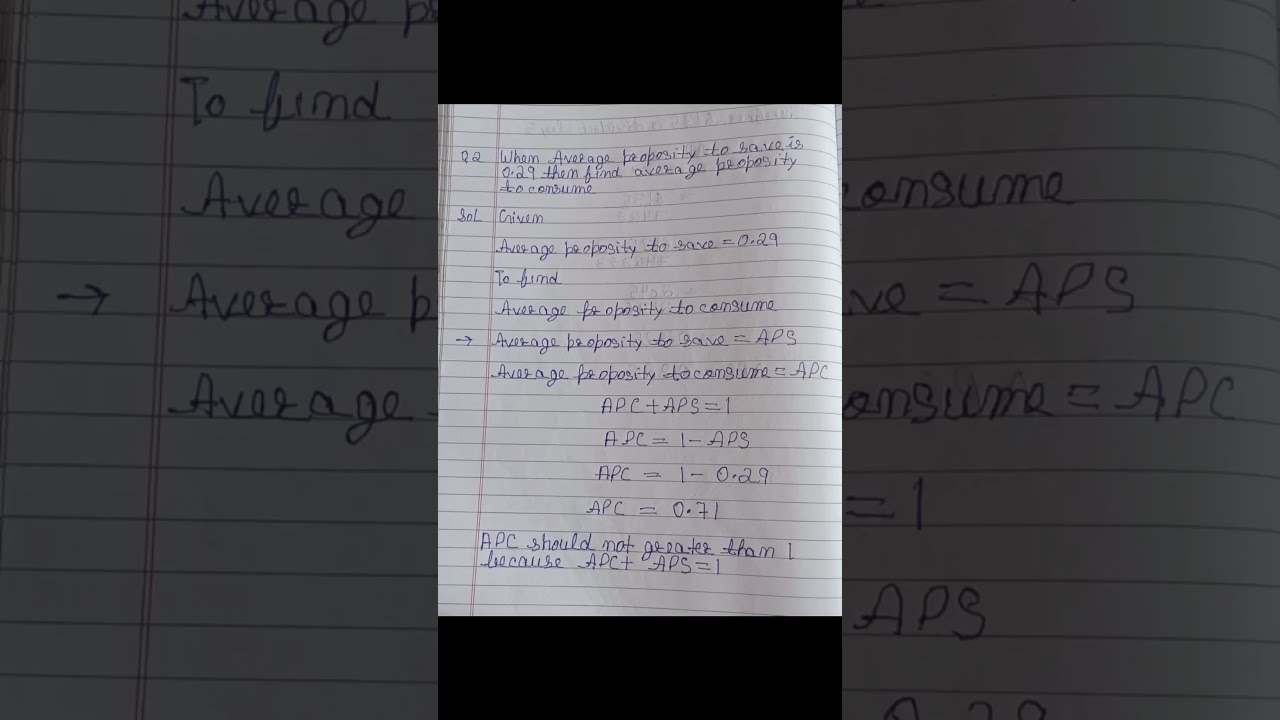 Q2 When Average proposity to save is
0.29 then find average proposity
to consume
Sol Given
Average proposity to save = 0.29
To find
Average proposity to consume
→ Average proposity to save = APS
Average proposity to consume = APC
APC + APS = 1
APC = 1 - APS
APC = 1 - 0.29
APC = 0.71
APC should not greater than 1
because APC+ APS = 1
Average p
To find
Average
consume
→ Average p
ve = APS
Average
onsume = APC
= 1
APS
0.29